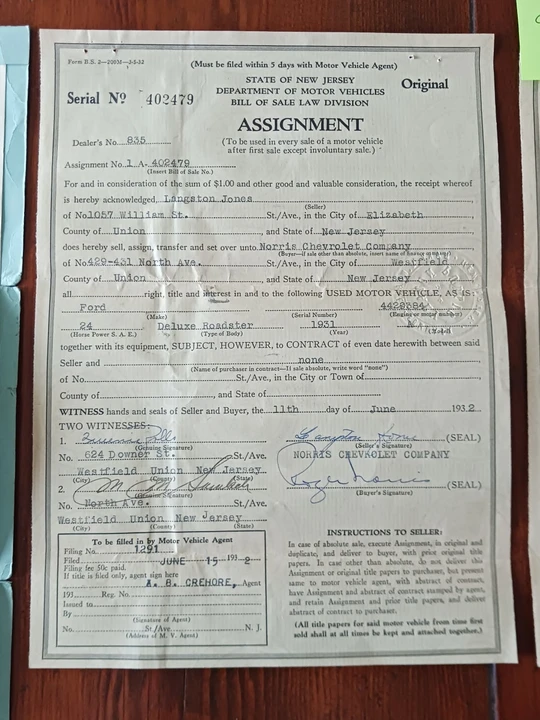 Form B.S. 2—200M—3-5-32
(Must be filed within 5 days with Motor Vehicle Agent)
STATE OF NEW JERSEY
DEPARTMENT OF MOTOR VEHICLES
BILL OF SALE LAW DIVISION
Original
Serial No 402479
ASSIGNMENT
Dealer's No. 835
(To be used in every sale of a motor vehicle
after first sale except involuntary sale.)
Assignment No. 1 A- 402479
(Insert Bill of Sale No.)
For and in consideration of the sum of $1.00 and other good and valuable consideration, the receipt whereof
is hereby acknowledged, Langston Jones
(Seller)
of No. 1057 William St. St./Ave., in the City of Elizabeth
County of Union, and State of New Jersey
does hereby sell, assign, transfer and set over unto Norris Chevrolet Company
(Buyer—if sale other than absolute, insert name of
of No. 429-431 North Ave. St./Ave., in the City of Westfield
County of Union, and State of New Jersey
all right, title and interest in and to the following USED MOTOR VEHICLE, AS IS:
Ford
(Make) (Serial Number) (Engine or motor number)
24 Deluxe Roadster 1931
(Horse Power S. A. E.) (Type of Body) (Year) (Model)
together with its equipment, SUBJECT, HOWEVER, to CONTRACT of even date herewith between said
Seller and none
(Name of purchaser in contract—If sale absolute, write word "none")
of No. St./Ave., in the City or Town of
County of, and State of
WITNESS hands and seals of Seller and Buyer, the 11th day of June 1932
TWO WITNESSES:
1. (SEAL)
(Genuine Signature) (Seller's Signature)
No. 624 Downer St. St./Ave. NORRIS CHEVROLET COMPANY
Westfield Union New Jersey
(City) (County) (State)
2. Roger Norris (SEAL)
(Genuine Signature) (Buyer's Signature)
No. North Ave. St./Ave.
Westfield Union New Jersey
(City) (County) (State)
To be filled in by Motor Vehicle Agent
Filing No. 1291
Filed JUNE 15 1932
Filing fee 50c paid.
If title is filed only, agent sign here
A. B. CREHORE, Agent
193 Reg. No.
Issued to
By
(Signature of Agent)
No. St/Ave N. J.
(Address of M. V. Agent)
INSTRUCTIONS TO SELLER:
In case of absolute sale, execute Assignment, in original and
duplicate, and deliver to buyer, with prior original title
papers. In case other than absolute, do not deliver this
Assignment or original title papers to purchaser, but present
same to motor vehicle agent, with abstract of contract,
have Assignment and abstract of contract stamped by agent,
and retain Assignment and prior title papers, and deliver
abstract of contract to purchaser.
(All title papers for said motor vehicle from time first
sold shall at all times be kept and attached together.)